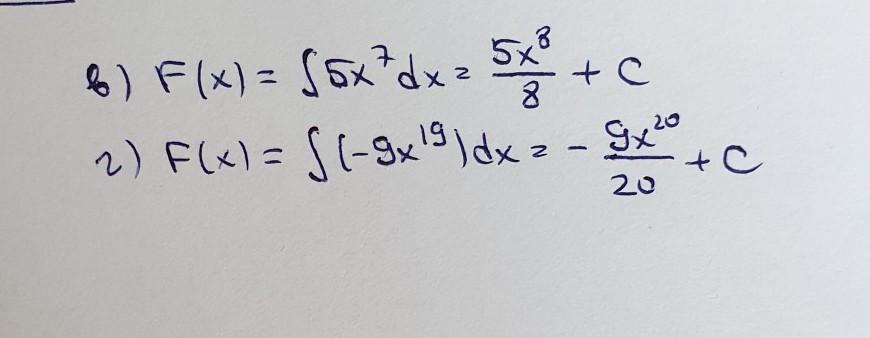 в) F(x) = ∫5x⁷dx = 5x⁸/8 + C
г) F(x) = ∫(-9x¹⁹)dx = - 9x²⁰/20 + C